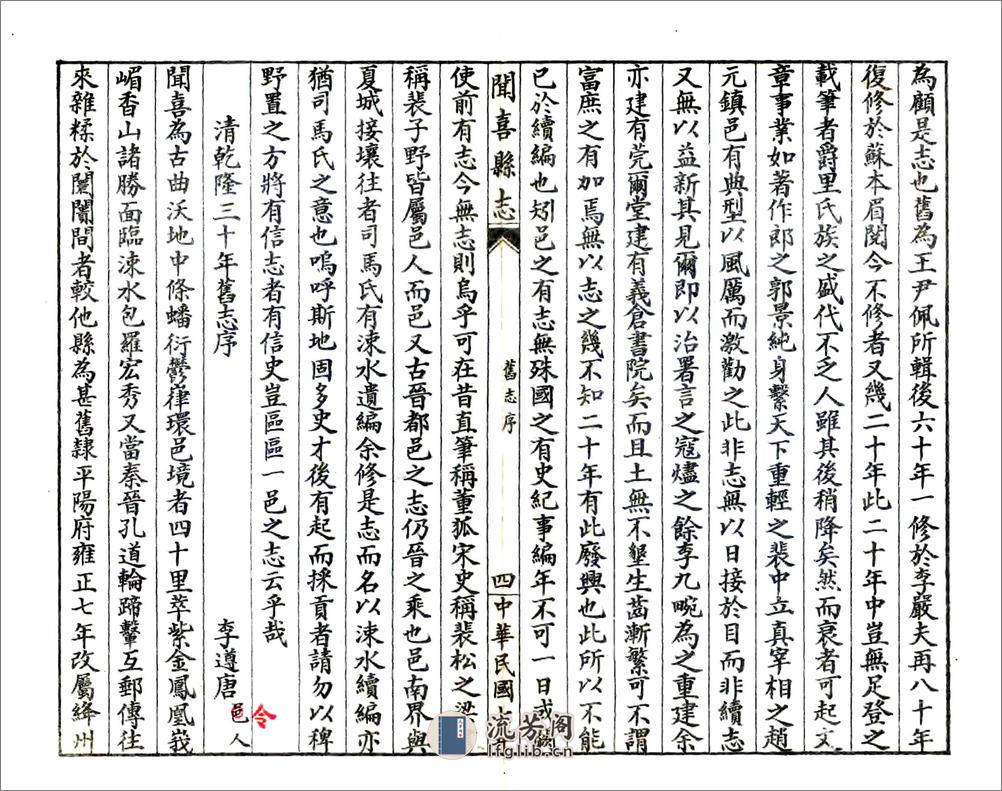 為顧是志也舊為王尹佩所輯後六十年一修於李嚴夫再八十年
復修於蘇本眉閱今不修者又幾二十年此二十年中豈無足登之
載筆者爵里氏族之盛代不乏人雖其後稍降矣然而衰者可起文
章事業如著作郎之郭景純身繫天下重輕之裴中立真宰相之趙
元鎮邑有典型以風厲而激勸之此非志無以日接於目而非續志
又無以益新其見爾即以治署言之寇燼之餘李九畹為之重建余
亦建有莞爾堂建有義倉書院矣而且土無不墾生齒漸繁可不謂
富庶之有加焉無以志之幾不知二十年有此廢興也此所以不能
已於續編也矧邑之有志無殊國之有史紀事編年不可一日或
聞喜縣志
舊志序
四
中華民國
使前有志今無志則烏乎可在昔直筆稱董狐宋史稱裴松之梁
稱裴子野皆屬邑人而邑又古晉都邑之志仍晉之乘也邑南界與
夏城接壤往者司馬氏有涑水遺編余修是志而名以涑水續編亦
猶司馬氏之意也嗚呼斯地固多史才後有起而採貢者請勿以稗
野置之方將有信志者有信史豈區區一邑之志云乎哉
清乾隆三十年舊志序
李遵唐
邑人
令
聞喜為古曲沃地中條蟠衍鬱嵂環邑境者四十里萃紫金鳳凰峩
嵋香山諸勝面臨涑水包羅宏秀又當秦晉孔道輪蹄鑿互郵傳往
來雜糅於闤闠間者較他縣為甚舊隸平陽府雍正七年改屬絳州
流芳阁
lfglib.cn